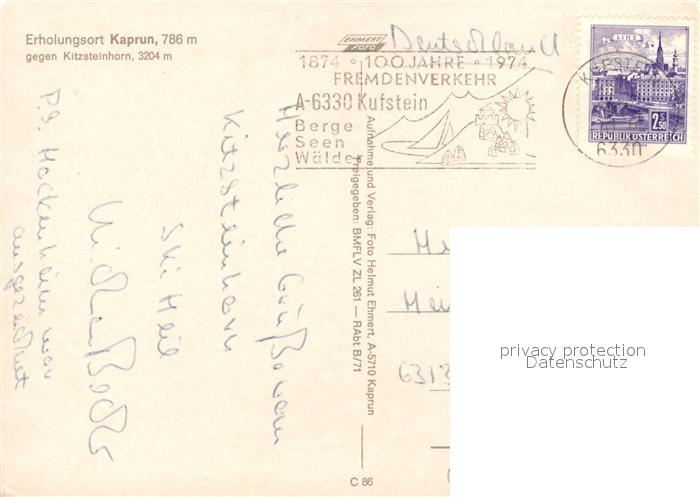 Erholungsort Kaprun, 786 m
gegen Kitzsteinhorn, 3204 m
EHMERT
FOTO
Deutschland
1874 • 100 JAHRE • 1974
FREMDENVERKEHR
A-6330 Kufstein
Berge
Seen
Wälder
LINZ
2.S50
REPUBLIK ÖSTERREICH
6330
Herzliche Grüße vom
Kitzsteinhorn
Ski Heil
P.S. Hockenheim war
ausgezeichnet
Aufnahme und Verlag: Foto Helmut Ehmert, A-5710 Kaprun
Freigegeben: BMFLV ZL 261 — RAbt B/71
6313
C 86
privacy protection
Datenschutz